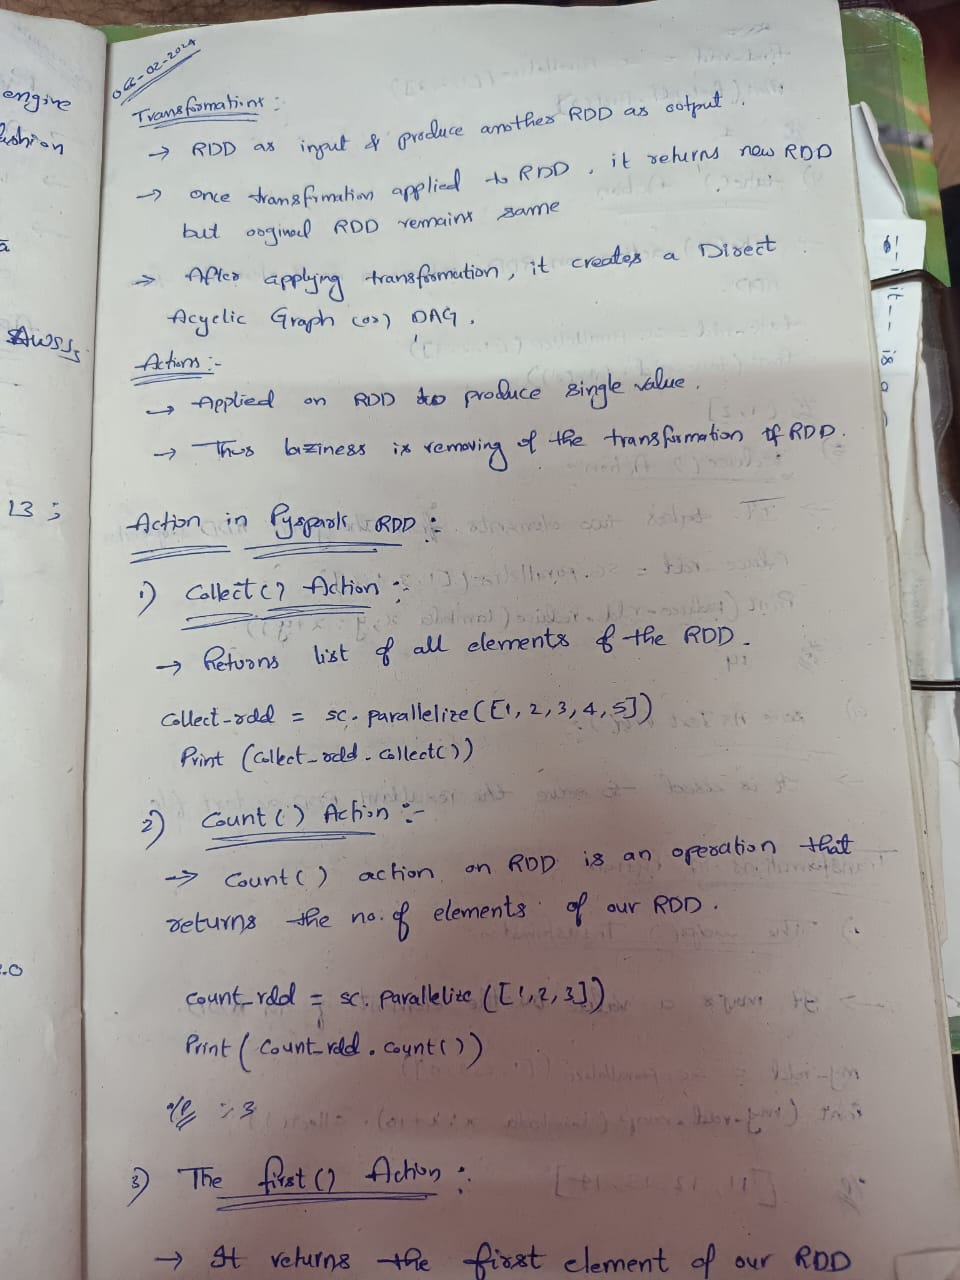 06-02-2024
Transformations :
→ RDD as input & produce another RDD as output.
→ once transfrmation applied to RDD, it returns new RDD
but original RDD remains same
→ After applying transformation, it creates a Direct
Acyclic Graph (or) DAG.
Actions :-
→ Applied on RDD to produce single value.
→ Thus laziness is removing of the transformation of RDD.
Action in Pyspark RDD :-
1) Collect() Action :-
→ Returns list of all elements of the RDD.
Collect_rdd = sc.parallelize([1, 2, 3, 4, 5])
Print (Collect_rdd.collect())
2) Count() Action :-
→ Count() action on RDD is an operation that
returns the no. of elements of our RDD.
Count_rdd = sc.parallelize([1, 2, 3])
Print (Count_rdd.count())
o/p :- 3
3) The first() Action :-
→ It returns the first element of our RDD
engine
ā
13 ;